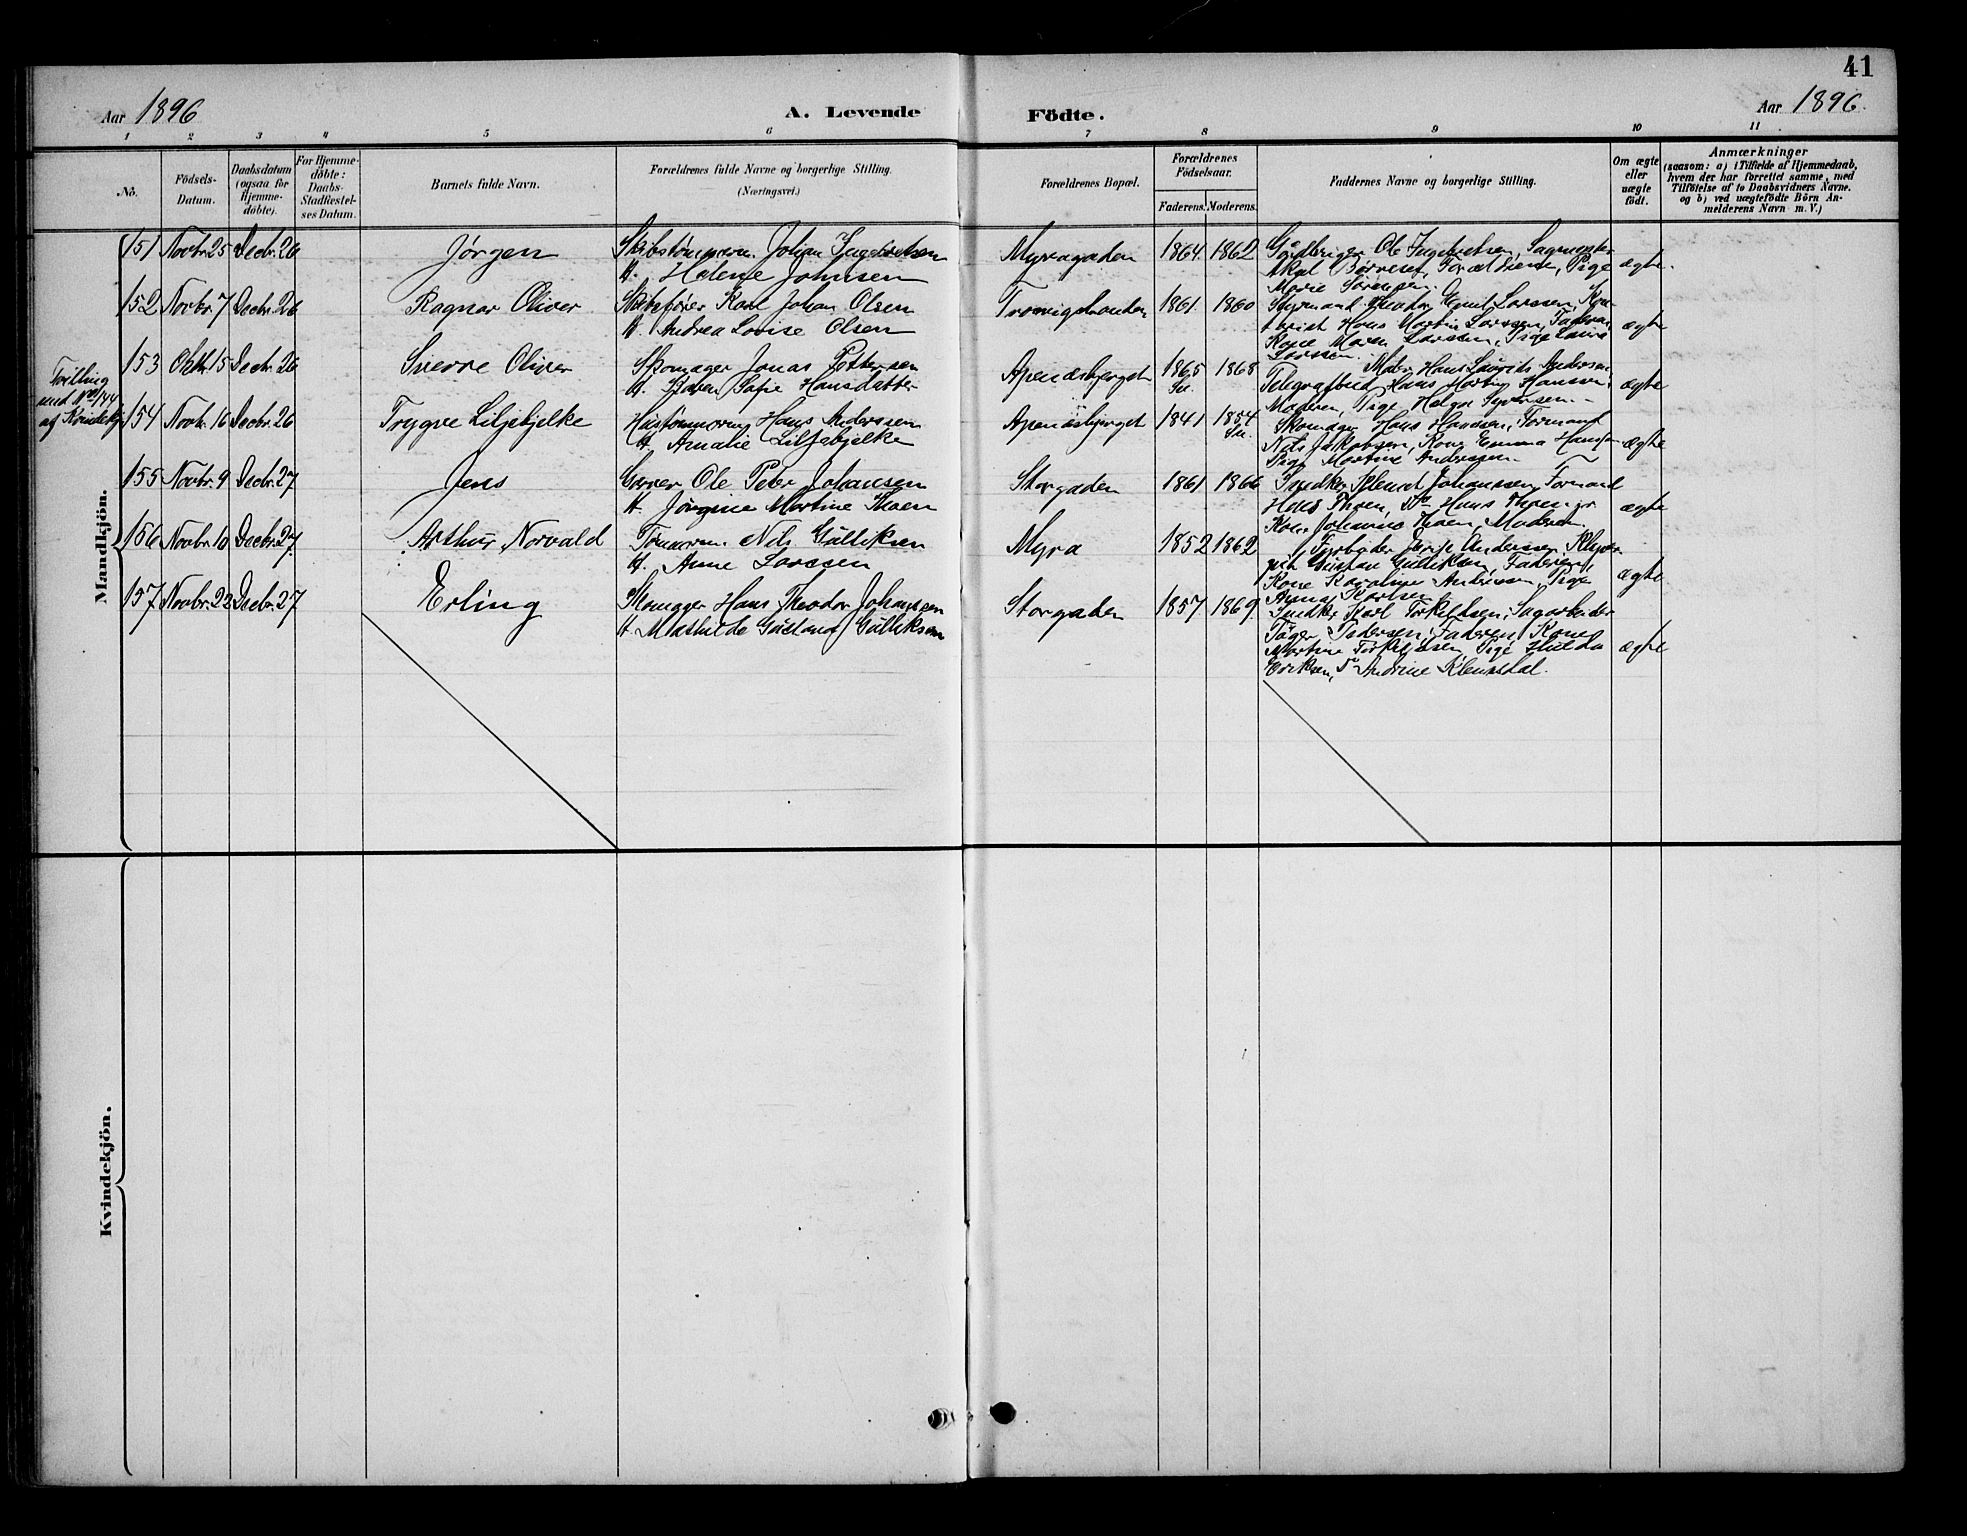 41
Aar 1896 A. Levende Födte. Aar 1896.
1 2 3 4 5 6 7 8 9 10 11
No.
Födsels-
Datum.
Daabsdatum
(ogsaa for
Hjemme-
döbte).
For Hjemme-
döbte:
Daabs-
Stadfæstel-
ses Datum.
Barnets fulde Navn.
Forældrenes fulde Navne og borgerlige Stilling.
(Næringsvei.)
Forældrenes Bopæl.
Forældrenes
Födselsaar.
Faderens. Moderens.
Faddernes Navne og borgerlige Stilling.
Om ægte
eller
uægte
födt.
Anmærkninger
(saasom: a) i Tilfælde af Hjemmedaab,
hvem der har forrettet samme, med
Tilföielse af to Daabsvidners Navne.
og b) ved uægtefödte Börn An-
melderens Navn m. V.)
Mandkjön.
151 Novbr. 25 Decbr. 26 Jørgen Johan Ingebretsen
H. Helene Johnsen
Myragaden 1864. 1862 Ole Ingebretsen,
Pige
Marie Sørensen.
ægte.
152 Novbr. 7 Decbr. 26 Ragnar Oliver Skibsfører Karl Johan Olsen
H. Andrea Lovise Olsen
1861. 1860 Styrmand Emil Larssen,
Hans Martin Larssen,
Kone Maren Larssen, Pige Laura
Larssen.
ægte
153 Oktbr. 15 Decbr. 26 Sverre Oliver Skomager Jonas Pettersen
H. Sofie Hansdatter
Apenæsbjerget 1865 1868
Hans Laurits Andersen
Telegrafbud Hans Martin Hansen,
Moderen, Pige Helga Syversen.
ægte
Tvilling
med No. 144
af Kvindekj.
154 Novbr. 16 Decbr. 26 Trygve Liljebjelke Hustømmerm. Hans Anderssen
H. Amalie Liljebjelke
Apenæsbjerget 1841 1854
Skomager Hans Hanssen, Formand
Nils Jakobsen, Kone Emma Hansen
Pige Martine Anderssen.
ægte
155 Novbr. 9 Decbr. 27 Jens Garver Ole Peter Johansen
H. Jørgine Martine Thoen
Storgaden 1861 1866 Snedker Johanssen, Formand
Hans Thoen, Do Hans Thoen jr
Kone Johanne Thoen, Moderen.
ægte
156 Novbr. 10 Decbr. 27 Arthur Norvald Tømmerm. Nils Gulliksen
H. Anne Larssen
Myra 1852 1862
Fyrbøder Anderssen,
Gustav Gulliksen, Faderen,
Kone Karoline Anderssen, Pige
Anna Karlsen
ægte
157 Novbr. 22 Decbr. 27 Erling Skomager Hans Theodor Johanssen
H. Mathilde Gustava Gulliksen
Storgaden 1857 1869
Snedker Karl Torkildsen, Sagarbeider
Pedersen, Faderen, Kone
Martine Torkildsen, Pige Hulda
Eriksen, Do Andrine Klemsdal.
ægte
Kvindekjön.